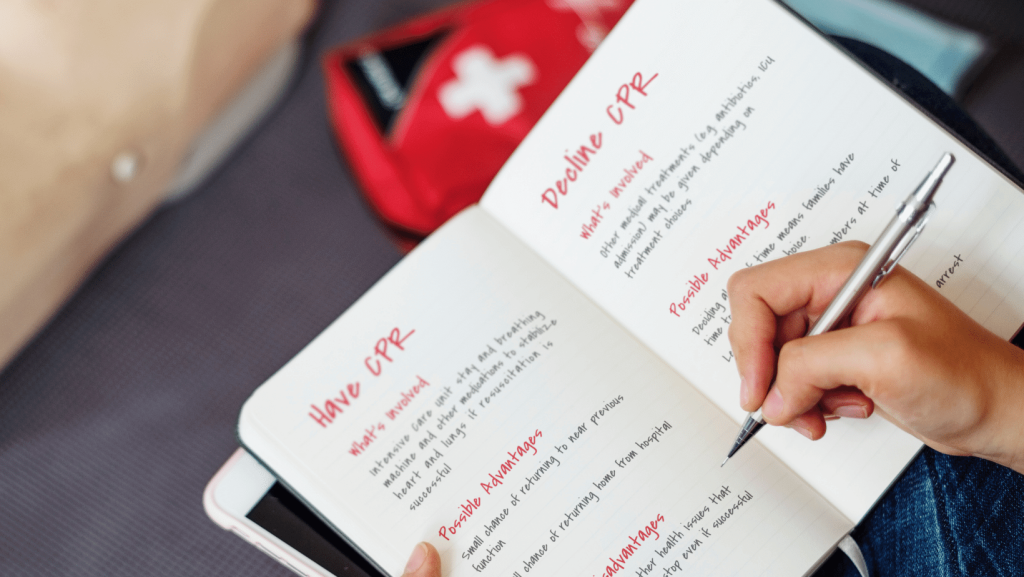 Have CPR
What's involved
intensive care unit stay and breathing
machine and other medications to stabilize
heart and lungs if resuscitation is
successful
Possible Advantages
small chance of returning to near previous
function
chance of returning home from hospital
isadvantages
ther health issues that
stop even if successful
Decline CPR
What's involved
Other medical treatments (e.g antibiotics, ICU
admission) may be given depending on
treatment choices
Possible Advantages
Deciding a
time means families have
time t
choice
mbers at time of
Le
arrest